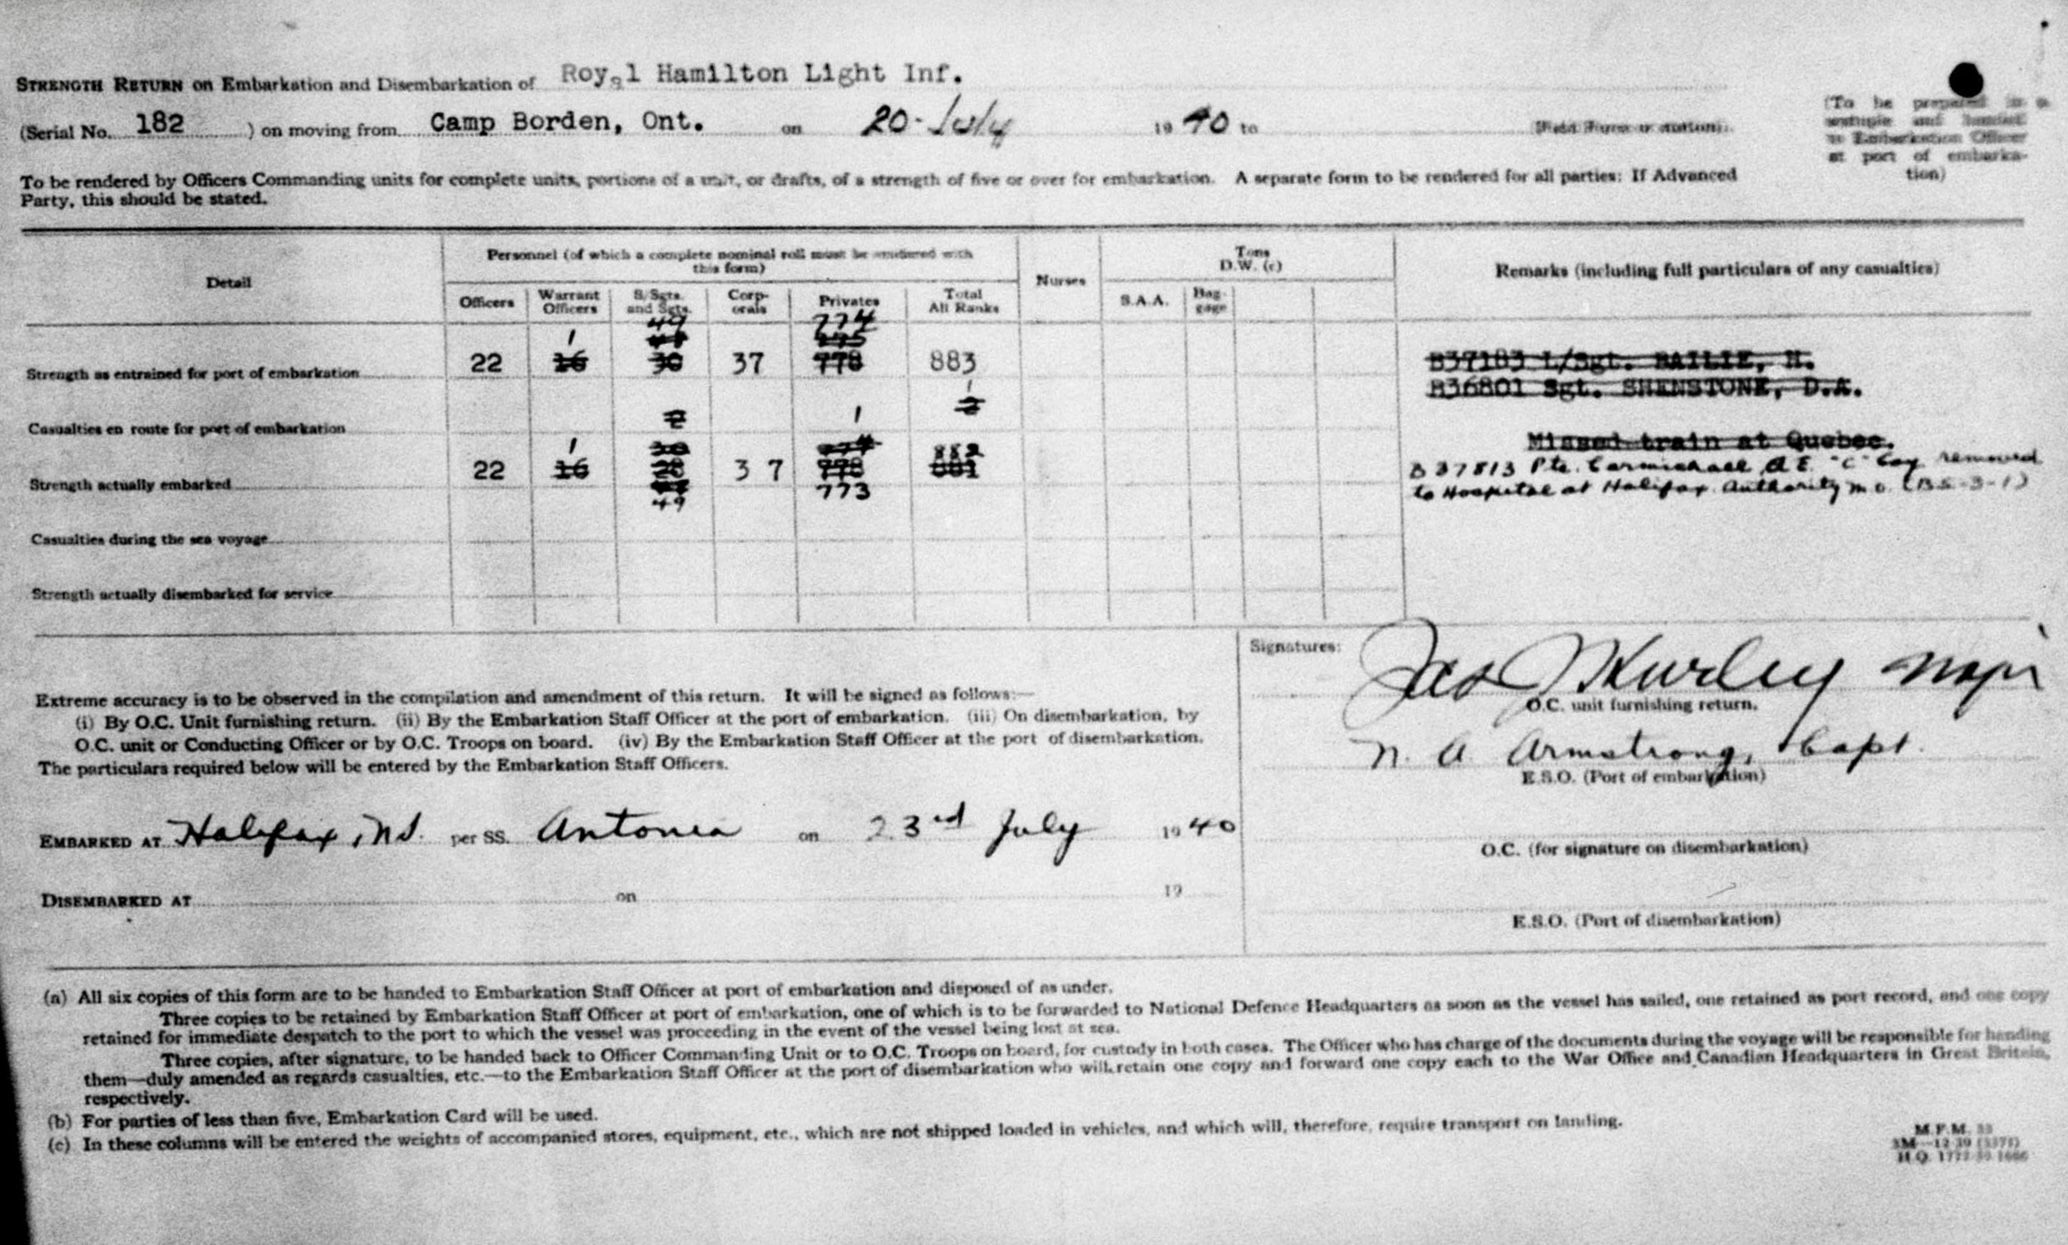 STRENGTH RETURN on Embarkation and Disembarkation of Royal Hamilton Light Inf.
(Serial No. 182 ) on moving from Camp Borden, Ont. on 20 July 1940 to
(To be prepared in
and
to Embarkation Officer
at port of embarka-
tion)
To be rendered by Officers Commanding units for complete units, portions of a unit, or drafts, of a strength of five or over for embarkation. A separate form to be rendered for all parties: If Advanced
Party, this should be stated.
Detail
Personnel (of which a complete nominal roll must be rendered with
this form)
Nurses
Tons
D.W. (c)
Remarks (including full particulars of any casualties)
Officers
Warrant
Officers
S/Sgts.
and Sgts.
Corp-
orals
Privates
Total
All Ranks
S.A.A.
Bag-
gage
1 49 774
Strength as entrained for port of embarkation 22 16 30 37 778 883
B37183 L/Sgt. BAILIE, H.
B36801 Sgt. SHENSTONE, D.A.
Casualties en route for port of embarkation 2 1 2 1
Missed train at Quebec.
1 30 774 882
Strength actually embarked 22 16 28 3 7 778 881
49 773
B 37813 Pte. Carmichael A E. "C" Coy removed
to Hospital at Halifax. Authority M.O. (B.S.-3-1)
Casualties during the sea voyage
Strength actually disembarked for service
Signatures:
Jas J Hurley Major
O.C. unit furnishing return.
N. A. Armstrong, Capt.
E.S.O. (Port of embarkation)
O.C. (for signature on disembarkation)
E.S.O. (Port of disembarkation)
Extreme accuracy is to be observed in the compilation and amendment of this return. It will be signed as follows:—
(i) By O.C. Unit furnishing return. (ii) By the Embarkation Staff Officer at the port of embarkation. (iii) On disembarkation, by
O.C. unit or Conducting Officer or by O.C. Troops on board. (iv) By the Embarkation Staff Officer at the port of disembarkation.
The particulars required below will be entered by the Embarkation Staff Officers.
EMBARKED AT Halifax, N.S. per SS. Antonia on 23rd July 1940
DISEMBARKED AT on 19
(a) All six copies of this form are to be handed to Embarkation Staff Officer at port of embarkation and disposed of as under.
Three copies to be retained by Embarkation Staff Officer at port of embarkation, one of which is to be forwarded to National Defence Headquarters as soon as the vessel has sailed, one retained as port record, and one copy
retained for immediate despatch to the port to which the vessel was proceeding in the event of the vessel being lost at sea.
Three copies, after signature, to be handed back to Officer Commanding Unit or to O.C. Troops on board, for custody in both cases. The Officer who has charge of the documents during the voyage will be responsible for handing
them—duly amended as regards casualties, etc.—to the Embarkation Staff Officer at the port of disembarkation who will retain one copy and forward one copy each to the War Office and Canadian Headquarters in Great Britain,
respectively.
(b) For parties of less than five, Embarkation Card will be used.
(c) In these columns will be entered the weights of accompanied stores, equipment, etc., which are not shipped loaded in vehicles, and which will, therefore, require transport on landing.
M.F.M. 33
3M—12-39 (3371)
H.Q. 1772-39-1666